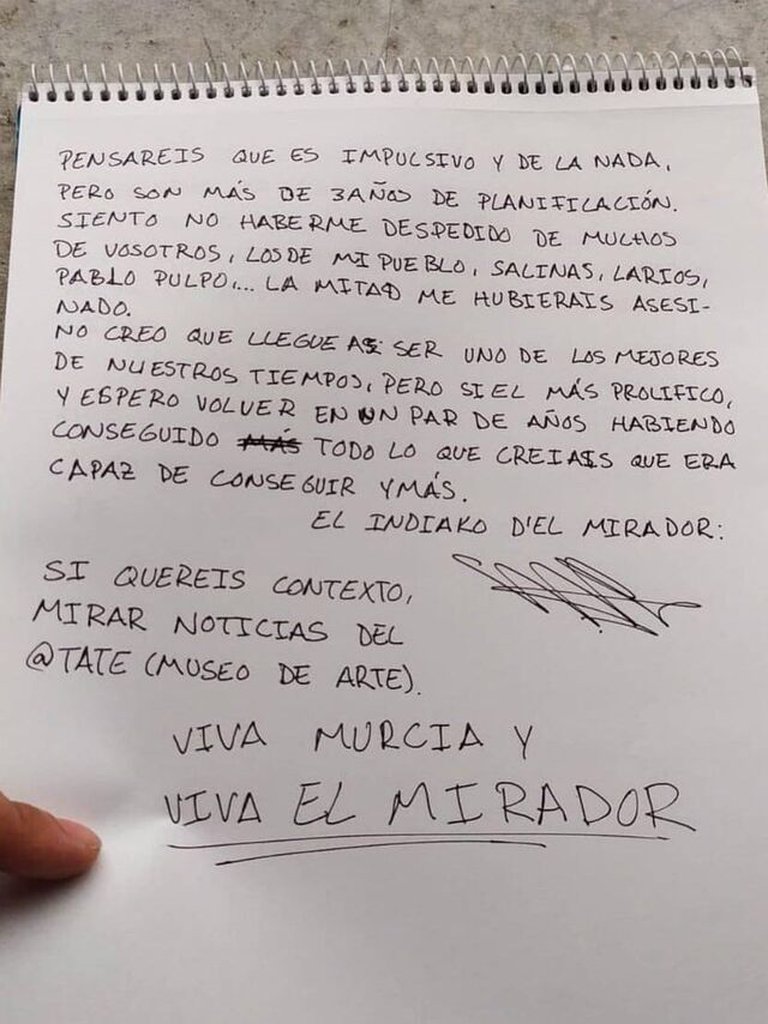 PENSAREIS QUE ES IMPULSIVO Y DE LA NADA,
PERO SON MÁS DE 3 AÑOS DE PLANIFILACIÓN.
SIENTO NO HABERME DESPEDIDO DE MUCHOS
DE VOSOTROS, LOS DE MI PUEBLO, SALINAS, LARIOS,
PABLO PULPO,... LA MITAD ME HUBIERAIS ASESI-
NADO.
NO CREO QUE LLEGUE A SER UNO DE LOS MEJORES
DE NUESTROS TIEMPOS, PERO SI EL MÁS PROLIFICO,
Y ESPERO VOLVER EN UN PAR DE AÑOS HABIENDO
CONSEGUIDO MÁS TODO LO QUE CREIAIS QUE ERA
CAPAZ DE CONSEGUIR Y MÁS.
EL INDIAKO D'EL MIRADOR:
SI QUEREIS CONTEXTO,
MIRAR NOTICIAS DEL
@TATE (MUSEO DE ARTE).
VIVA MURCIA Y
VIVA EL MIRADOR